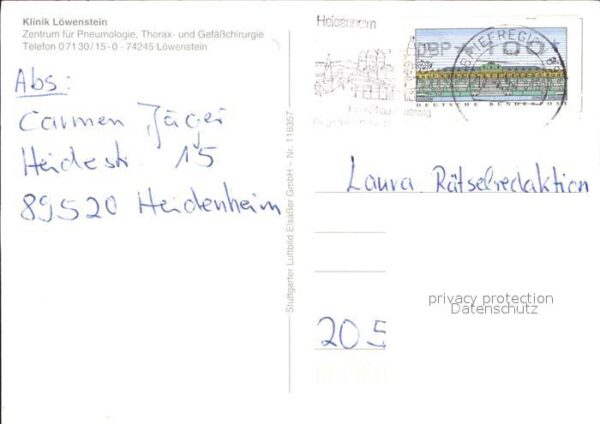 Klinik Löwenstein
Zentrum für Pneumologie, Thorax- und Gefäßchirurgie
Telefon 07130/15-0 · 74245 Löwenstein
Abs:
Carmen Jäger
Heidestr. 15
89520 Heidenheim
Stuttgarter Luftbild Elsäßer GmbH – Nr. 116357
Heidenheim
DBP 100
BRIEFREGION 89
DEUTSCHE BUNDESPOST
Laura Rätselredaktion
privacy protection
Datenschutz
205